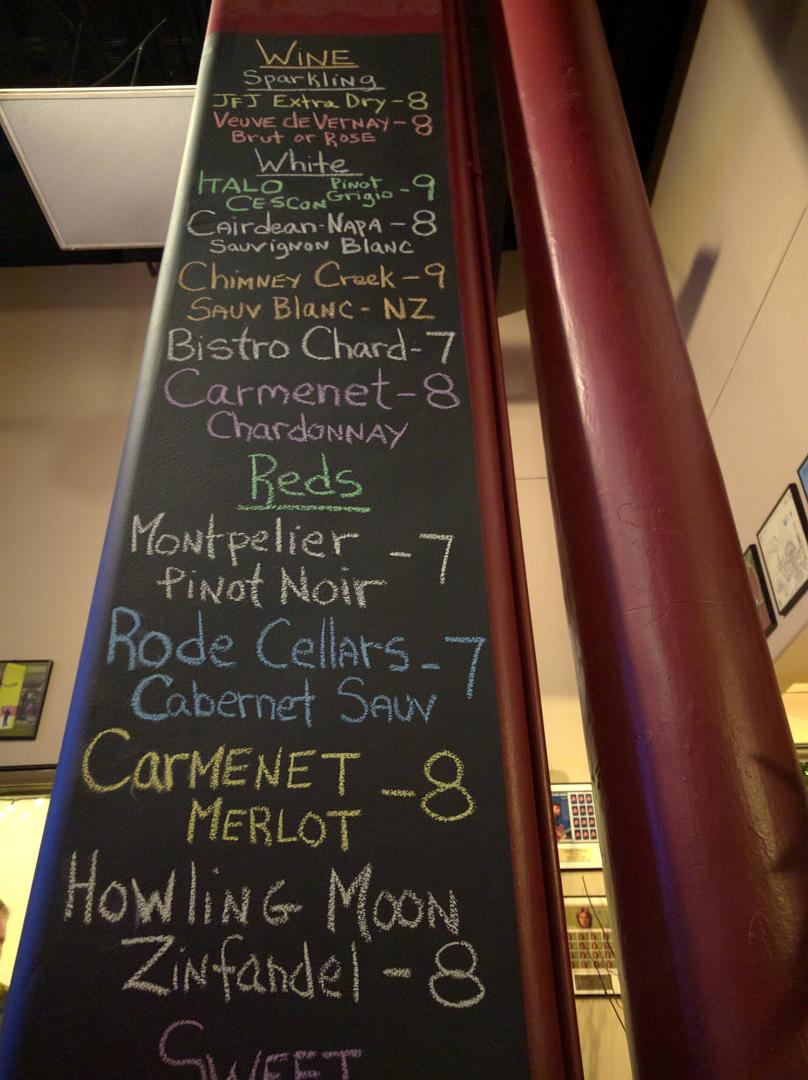 WINE
Sparkling
JFJ Extra Dry - 8
Veuve de Vernay - 8
Brut or Rose
White
Italo Cescon Pinot Grigio - 9
Cairdean - Napa - 8
Sauvignon Blanc
Chimney Creek - 9
Sauv Blanc - NZ
Bistro Chard - 7
Carmenet - 8
Chardonnay
Reds
Montpelier - 7
Pinot Noir
Rode Cellars - 7
Cabernet Sauv
Carmenet - 8
Merlot
Howling Moon
Zinfandel - 8
Sweet